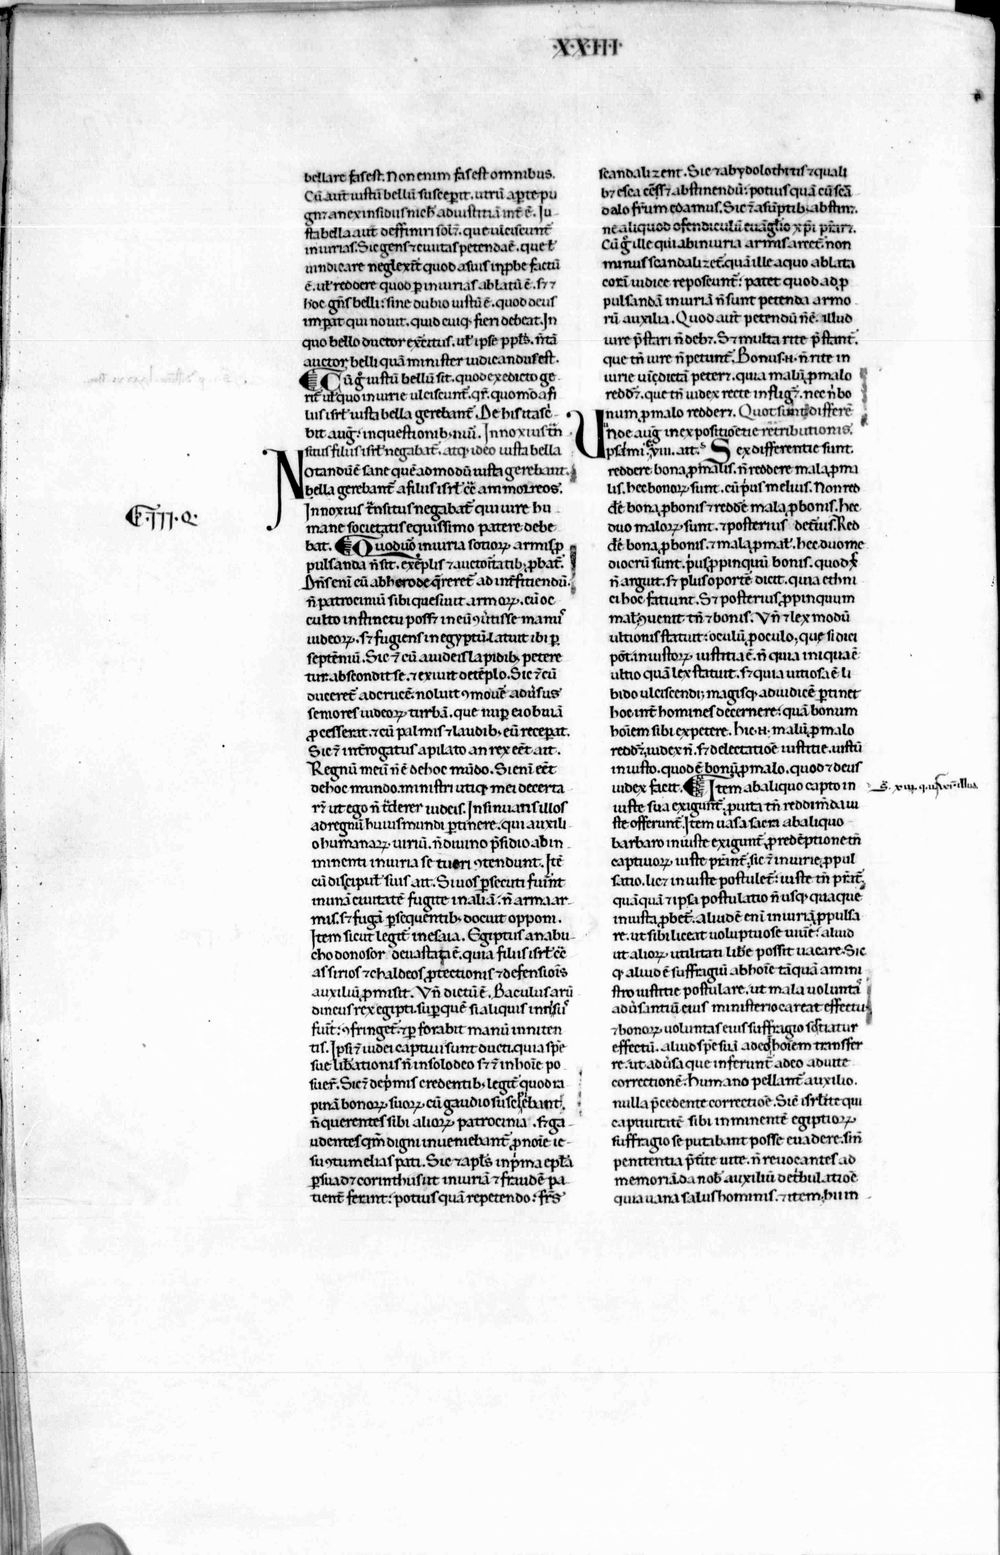 ·X·X·III·
bellare fas est. Non enim fas est omnibus.
Cū aut̄ iustū bellū susceꝑit. utrū aꝑte pu
gn&. an ex insidiis nich̄ ad iustitiā int̄ ē. Iu
sta bella aut̄ deffiniri sol&. que ulciscunt̄
iniurias. Sic gens & ciuitas petenda ē. que ł
uindicare neglexit̄ quod a suis inꝓbe factū
ē. uł reddere quod ꝑ iniurias ablatū ē. s; &
hoc gn̄s belli: sine dubio iustū ē. quod deus
imꝑat qui nouit. quid cuiq; fieri debeat. In
quo bello ductor exc̄itus. uł ipse ppl̄s. n̄ tā
auctor belli quā minister iudicandus est.
Cū g° iustū bellū sit. quod ex edicto ge
rit̄ uł quo iniurie ulciscunt̄. qr̄. quom̊ a fi
liis isrł iusta bella gerebant̄. De his ita sc̄
bit aug: in questionib; nūi. Innoxius t̄n
situs filiis isrł negabat̄. atq; ideo iusta bella
Notandū ē sane quē admodū iusta gerebant̄.
bella gerebant̄ a filiis isrł cc̄ amorreos.
Innoxius t̄nsitus negabat̄ qui iure hu
mane societatis equissimo patere debe
·III·Q·
bat. Quod uō iniuria sotioꝝ armis ꝓ
pulsanda n̄ sit. exēplis & auctoritatib; ꝓbat̄.
Dn̄s eni cū ab herode q̄reret̄ ad int̄fitiendū.
n̄ patrocimiū sibi quesiuit armoꝝ. cū oc
culto instinctu poss& in eū 9ūtisse man'
iudeoꝝ. s; fugiens in egyptū. latuit ibi ꝑ
septēniū. Sic & cū a iudeis lapidib; petere
tur abscondit se. & exiuit de tēplo. Sic & cū
duceret̄ ad crucē. noluit 9mouē adūsus
seniores iudeoꝝ turbā. que nuꝑ ei obuiā
ꝓcesserit. & cū palmis & laudib; eū receꝑat.
Sic & int̄rogatus a pilato an rex eēt ait.
Regnū meū n̄ ē de hoc mūdo. Si eni eēt
de hoc mundo. ministri utiq; mei decerta
r& ut ego n̄ t̄derer iudeis. Insinuans illos
ad regnū huius mundi ꝑtinere. qui auxili
o humanaꝝ uiriū. n̄ diuino p̄sidio ab in
minenti iniuria se tueri 9tendunt. Itē
cū discipuł suis ait. Si uos ꝑsecuti fuīnt
in una ciuitate fugite in aliā: n̄ arma ar
mis. s; fugā ꝑsequentib; docuit opponi.
Item sicut legit̄ in esaia. Egiptus a nabu
chodonosor deuastata ē. quia filiis isrł cc̄
assirios & chaldeos ꝓtectionis & defensiōis
auxiliū ꝓmisit. Vn̄ dictū ē. Baculus arū
dineus rex egipti. suꝑ quē si aliquis inn̄sus
fuit̄: 9fringet̄. & ꝑforabit manū inniten
tis. Ipsi & iudei captiui sunt ducti. quia spē
sue lib̄ationis n̄ in solo deo s; & in hoīe po
suer̄. Sic & de p̄mis credentib; legit̄ quod ra
pinā bonoꝝ suoꝝ cū gaudio suscipiebant.
n̄ querentes sibi alioꝝ patrocinia. s; ga
udentes qm̄ digni inueniebant̄ ꝓ noīe ie
su 9tumelias pati. Sic & apl̄s in p̄ma epl̄a
ꝑsuad& corinthiis ut iniuriā & fraudē pa
tient̄ ferant: potius quā repetendo: fr̄s
scandalizent. Sic & ab ydolothitis & quali
b; esca cēss& abstinendū: potius quā cū scā
dalo fr̄um edamus. Sic & a sūptib; abstin&.
ne aliquod ofendiculū euāglio xp̄i p̄tar&.
Cū g° ille qui ab iniuria armis arcet̄ non
minus scandalizet̄. quā ille a quo ablata
corā iudice reposcunt̄: patet quod ad ꝓ
pulsandā iniuriā n̄ sunt petenda armo
rū auxilia. Quod aut̄ petendū n̄ ē. illud
iure p̄stari n̄ deb&. S; multa rite p̄stant̄.
que tn̄ iure n̄ petunt̄. Bonus .n. n̄ rite in
iurie uīdictā peter&. quia malū ꝓ malo
redd&. que tn̄ iudex recte inflig&. nec ñ bo
num ꝓ malo redder&. Quot sunt differē
tie retributionis.
Vnde aug̃ in expositione
psalmi .c.viii. ait. Sex differentie sunt.
reddere bona ꝓ malis. n̄ reddere mala ꝓ ma
lis. hec bonoꝝ sunt. cū p̄us melius. Non red
dē bona ꝓ bonis & reddē mala ꝓ bonis. hec
duo maloꝝ sunt. & posterius det̄ius. Red
dē bona ꝓ bonis. & mala ꝓ mał. hec duo me
diocrū sunt. p̄us ꝓpinquū bonis. quod xp̄
n̄ arguit. s; plus oportē dicit. quia ethni
ci hoc fatiunt. S; posterius ꝓpinquum
mał 9uenit tn̄ & bonis. Vn̄ & lex modū
ultionis statuit: oculū ꝓ oculo. que si dici
pōt. iniustoꝝ iustitia ē. n̄ quia iniqua ē
ultio quā lex statuit. s; quia uitiosa ē li
bido ulciscendi; magisq; ad iudicē ꝑtinet
hoc int̄ homines decernere: quā bonum
hoīem sibi expetere. hic .n. malū ꝓ malo
redd&. iudex n̄. s; delectatiōe iustitie. uistū
iniusto. quod ē bonū ꝓ malo. quod & deus
iudex facit. Item ab aliquo capto in
iuste sua exigunt̄. ꝓ uita tn̄ reddim̄da iu
ste offerunt̄. Item uasa sacra ab aliquo
barbaro iniuste exigunt̄. ꝓ redēptione tn̄
captiuoꝝ iuste p̄tant̄. sic & iniurie ꝓpul
satio. lic& iniuste postulet̄: iuste tn̄ p̄tat̄.
quāquā & ipsa postulatio n̄ usq; quaque
iniusta ꝓbet̄. aliud ē eni iniuriā ꝓpulsa
re. ut sibi liceat uoluptuose uiue̅: aliud
ut alioꝝ utilitati lib̄e possit uacare. Sic
q; aliud ē suffragiū ab hoīe tāquā a mini
stro iustitie postulare. ut mala uoluntā
adūsantiū eius ministerio careat effectu
& bonoꝝ uoluntas eius suffragio sortiatur
effectū. aliud spē suā a deo ad hoīem transfer
re. ut adūsa que inferunt̄ a deo ad uite
correctionē. humano pellant̄ auxilio.
nulla p̄cedente correctiōe. Sic isrl̄ite qui
captiuitatē sibi inminentē egiptioꝝ
suffragio se putabant posse euadere. sin̄
penitentia p̄tite uite. n̄ reuocantes ad
memoriā. da nob̄ auxiliū de t̄bulatiōe
quia uana salus hominis. & item. hi in